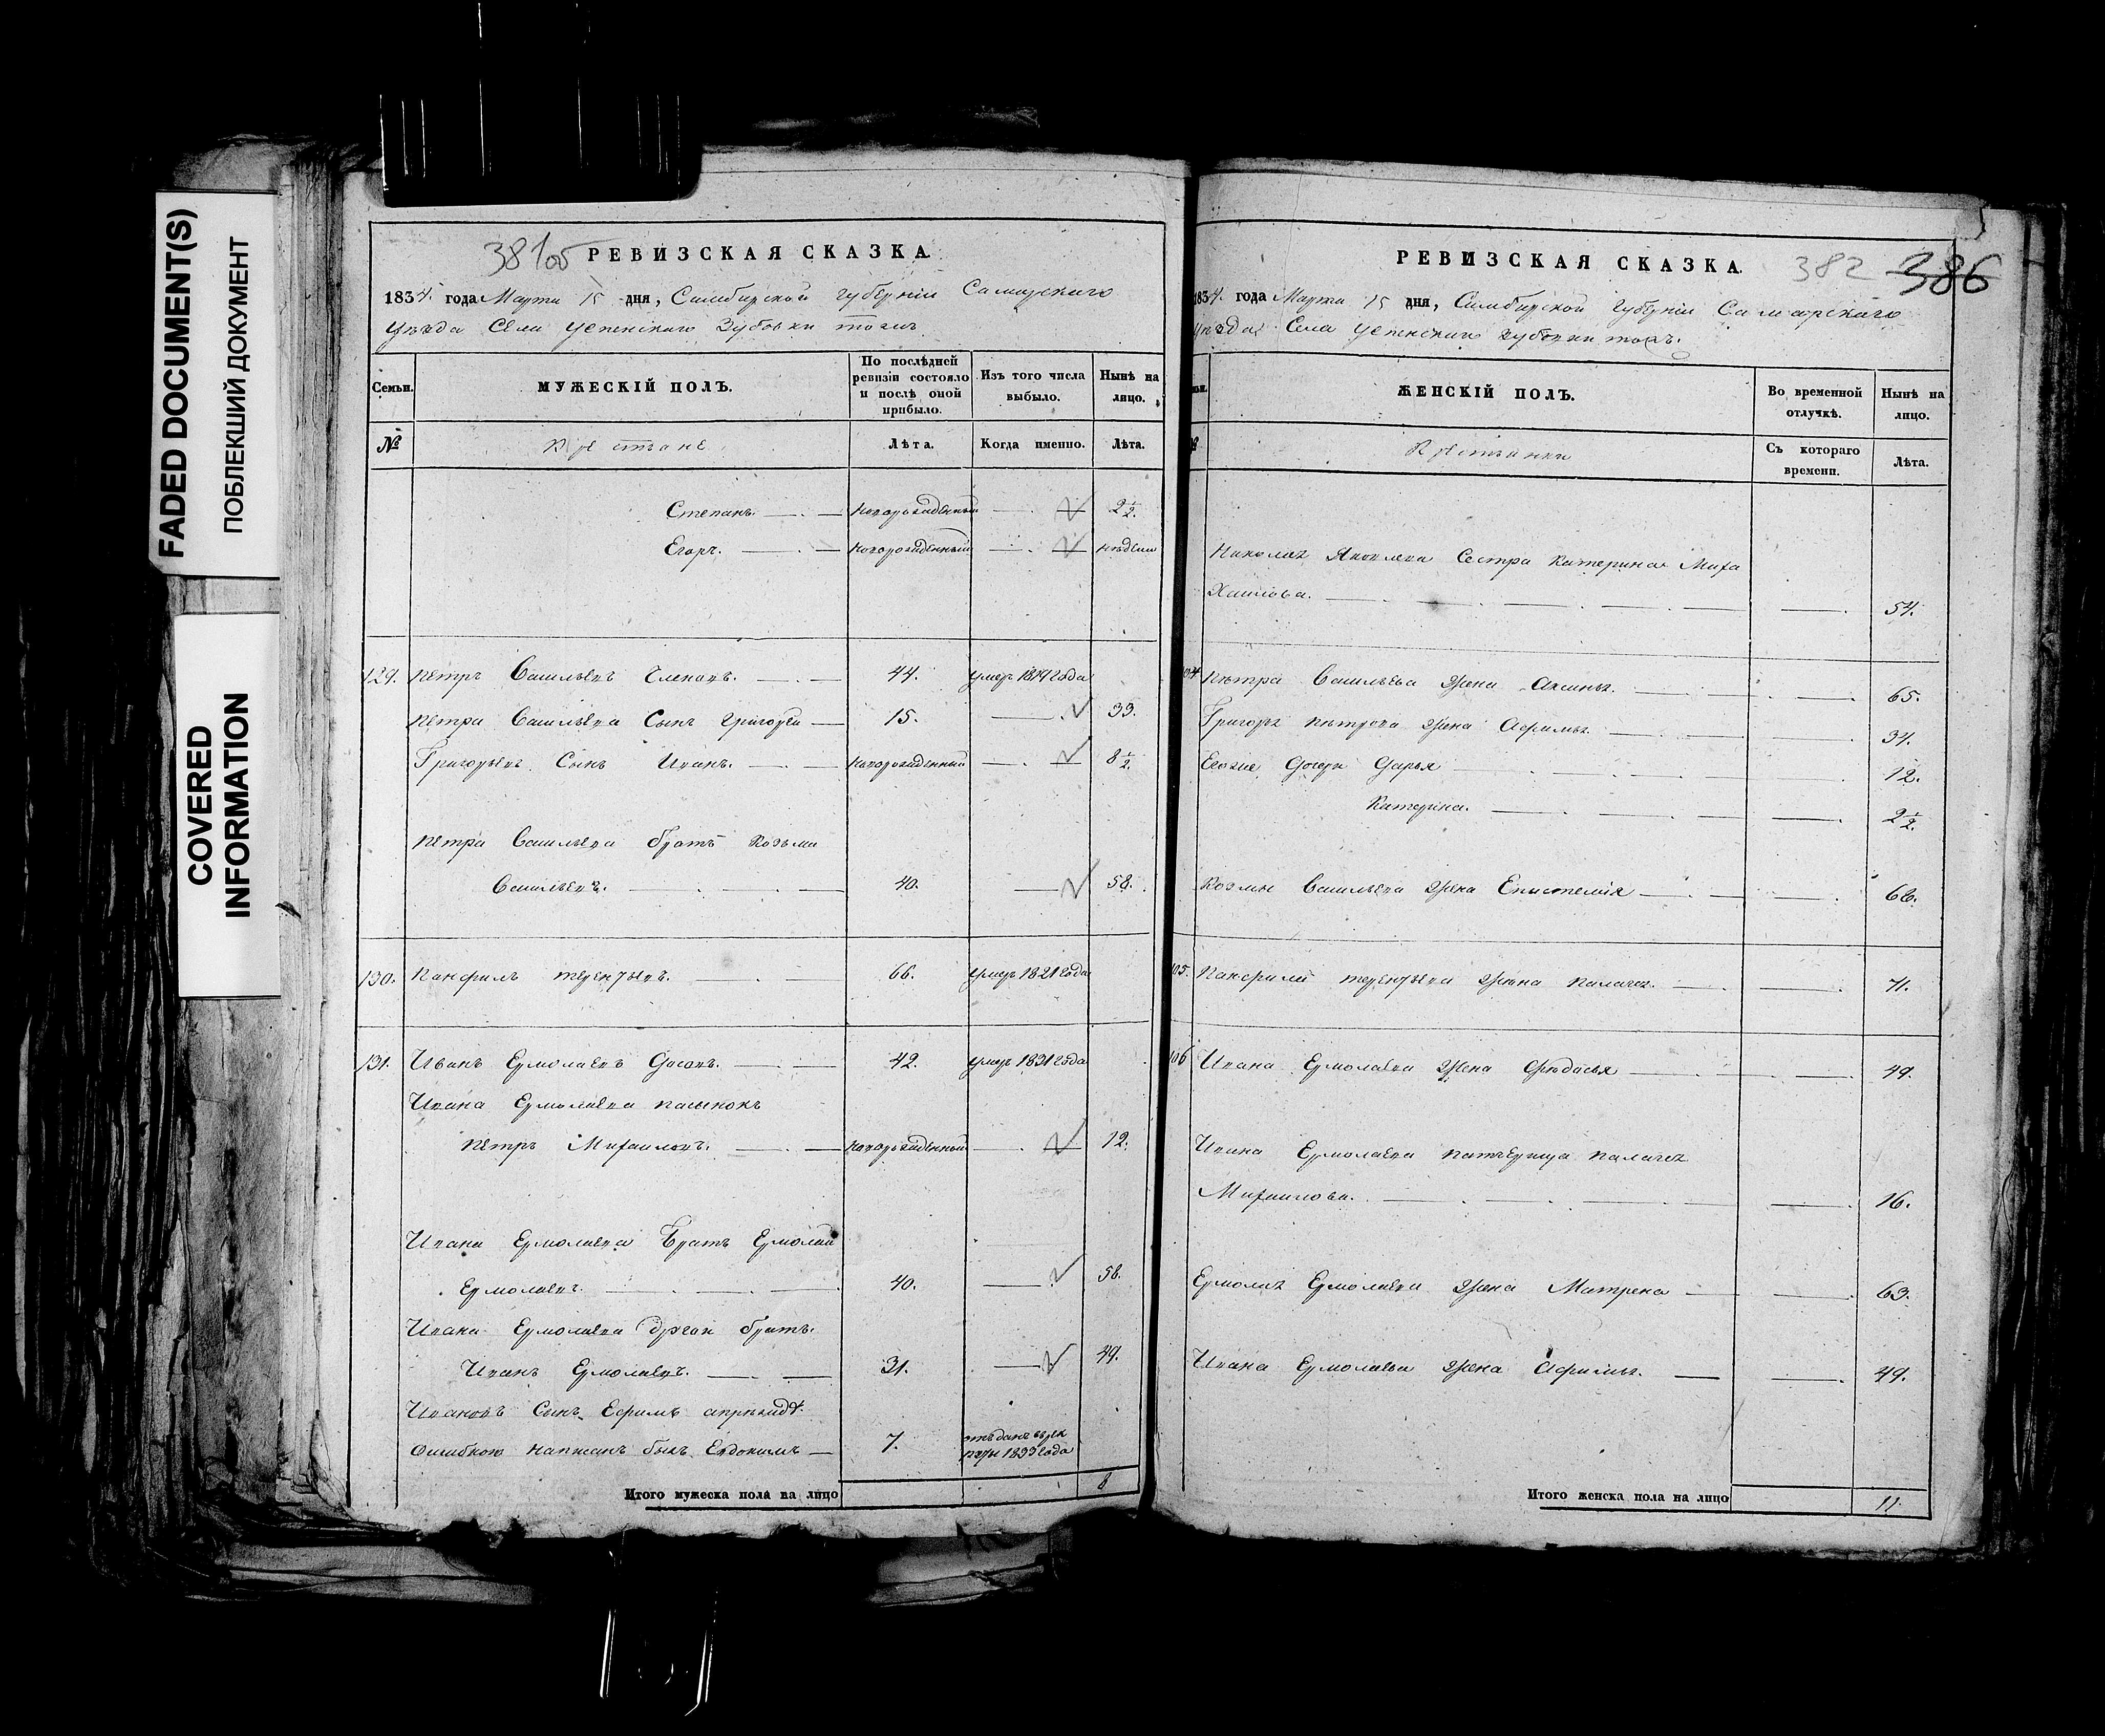 FADED DOCUMENT(S)
ПОБЛЕКШИЙ ДОКУМЕНТ
COVERED
INFORMATION
381об РЕВИЗСКАЯ СКАЗКА
1834. года Марта 15 дня, Симбирской губерніи Самарского
уезда Села Успенскаго Зубовки тожъ
Семьи. МУЖЕСКІЙ ПОЛЪ. По послѣдней ревизіи состояло и послѣ оной прибыло. Изъ того числа выбыло. Нынѣ на лицо.
№ Крестьяне Лѣта. Когда именно. Лѣта.
Степанъ. новорожденный 2 1/2.
Егоръ. новорожденный недели
129. Петръ Васильевъ Членовъ. 44. умеръ 18 года
Петра Васильева Сынъ Григорей 15. 33.
Григорьевъ Сынъ Иванъ. новорожденный 8 1/2.
Петра Васильева братъ Козьма
Васильевъ. 40. 58.
130. Панфилъ Терентьевъ. 66. умеръ 1821 года
131. Иванъ Ермолаевъ 42. умеръ 1831 года
Ивана Ермолаева пасынокъ
Петръ Михаиловъ. новорожденный 12.
Ивана Ермолаева Братъ Ермолай
Ермолаевъ. 40. 58.
Ивана Ермолаева другой братъ.
Иванъ Ермолаевъ. 31. 49.
Ивановъ Сынъ Ефимъ
Ошибкою написанъ былъ Евдокимъ 7. отъданъ въ рекруты 1833 года
Итого мужеска пола на лицо 8
РЕВИЗСКАЯ СКАЗКА. 382 386
1834. года Марта 15 дня, Симбирской губерніи Самарскаго
уезда Села Успенскаго Зубовки тожъ.
ЖЕНСКІЙ ПОЛЪ. Во временной отлучкѣ. Нынѣ на лицо.
Крестьянки Съ котораго времени. Лѣта.
Николая Яковлева Сестра Катерина Миха
хаилова. 54.
104 Петра Васильева жена Аксинья. 65.
Григорья Петрова жена Афимья. 34.
Евоние дочери Дарья 12.
Катерина. 2 1/2.
Козмы Васильева жена Епистемія 66.
105. Панфила Терентьева жена Палагея. 71.
106 Ивана Ермолаева жена Федосья 49.
Ивана Ермолаева патчерица Палагея
Михаилова. 16.
Ермолая Ермолаева жена Матрена 63.
Ивана Ермолаева жена Афимья. 49.
Итого женска пола на лицо 11.